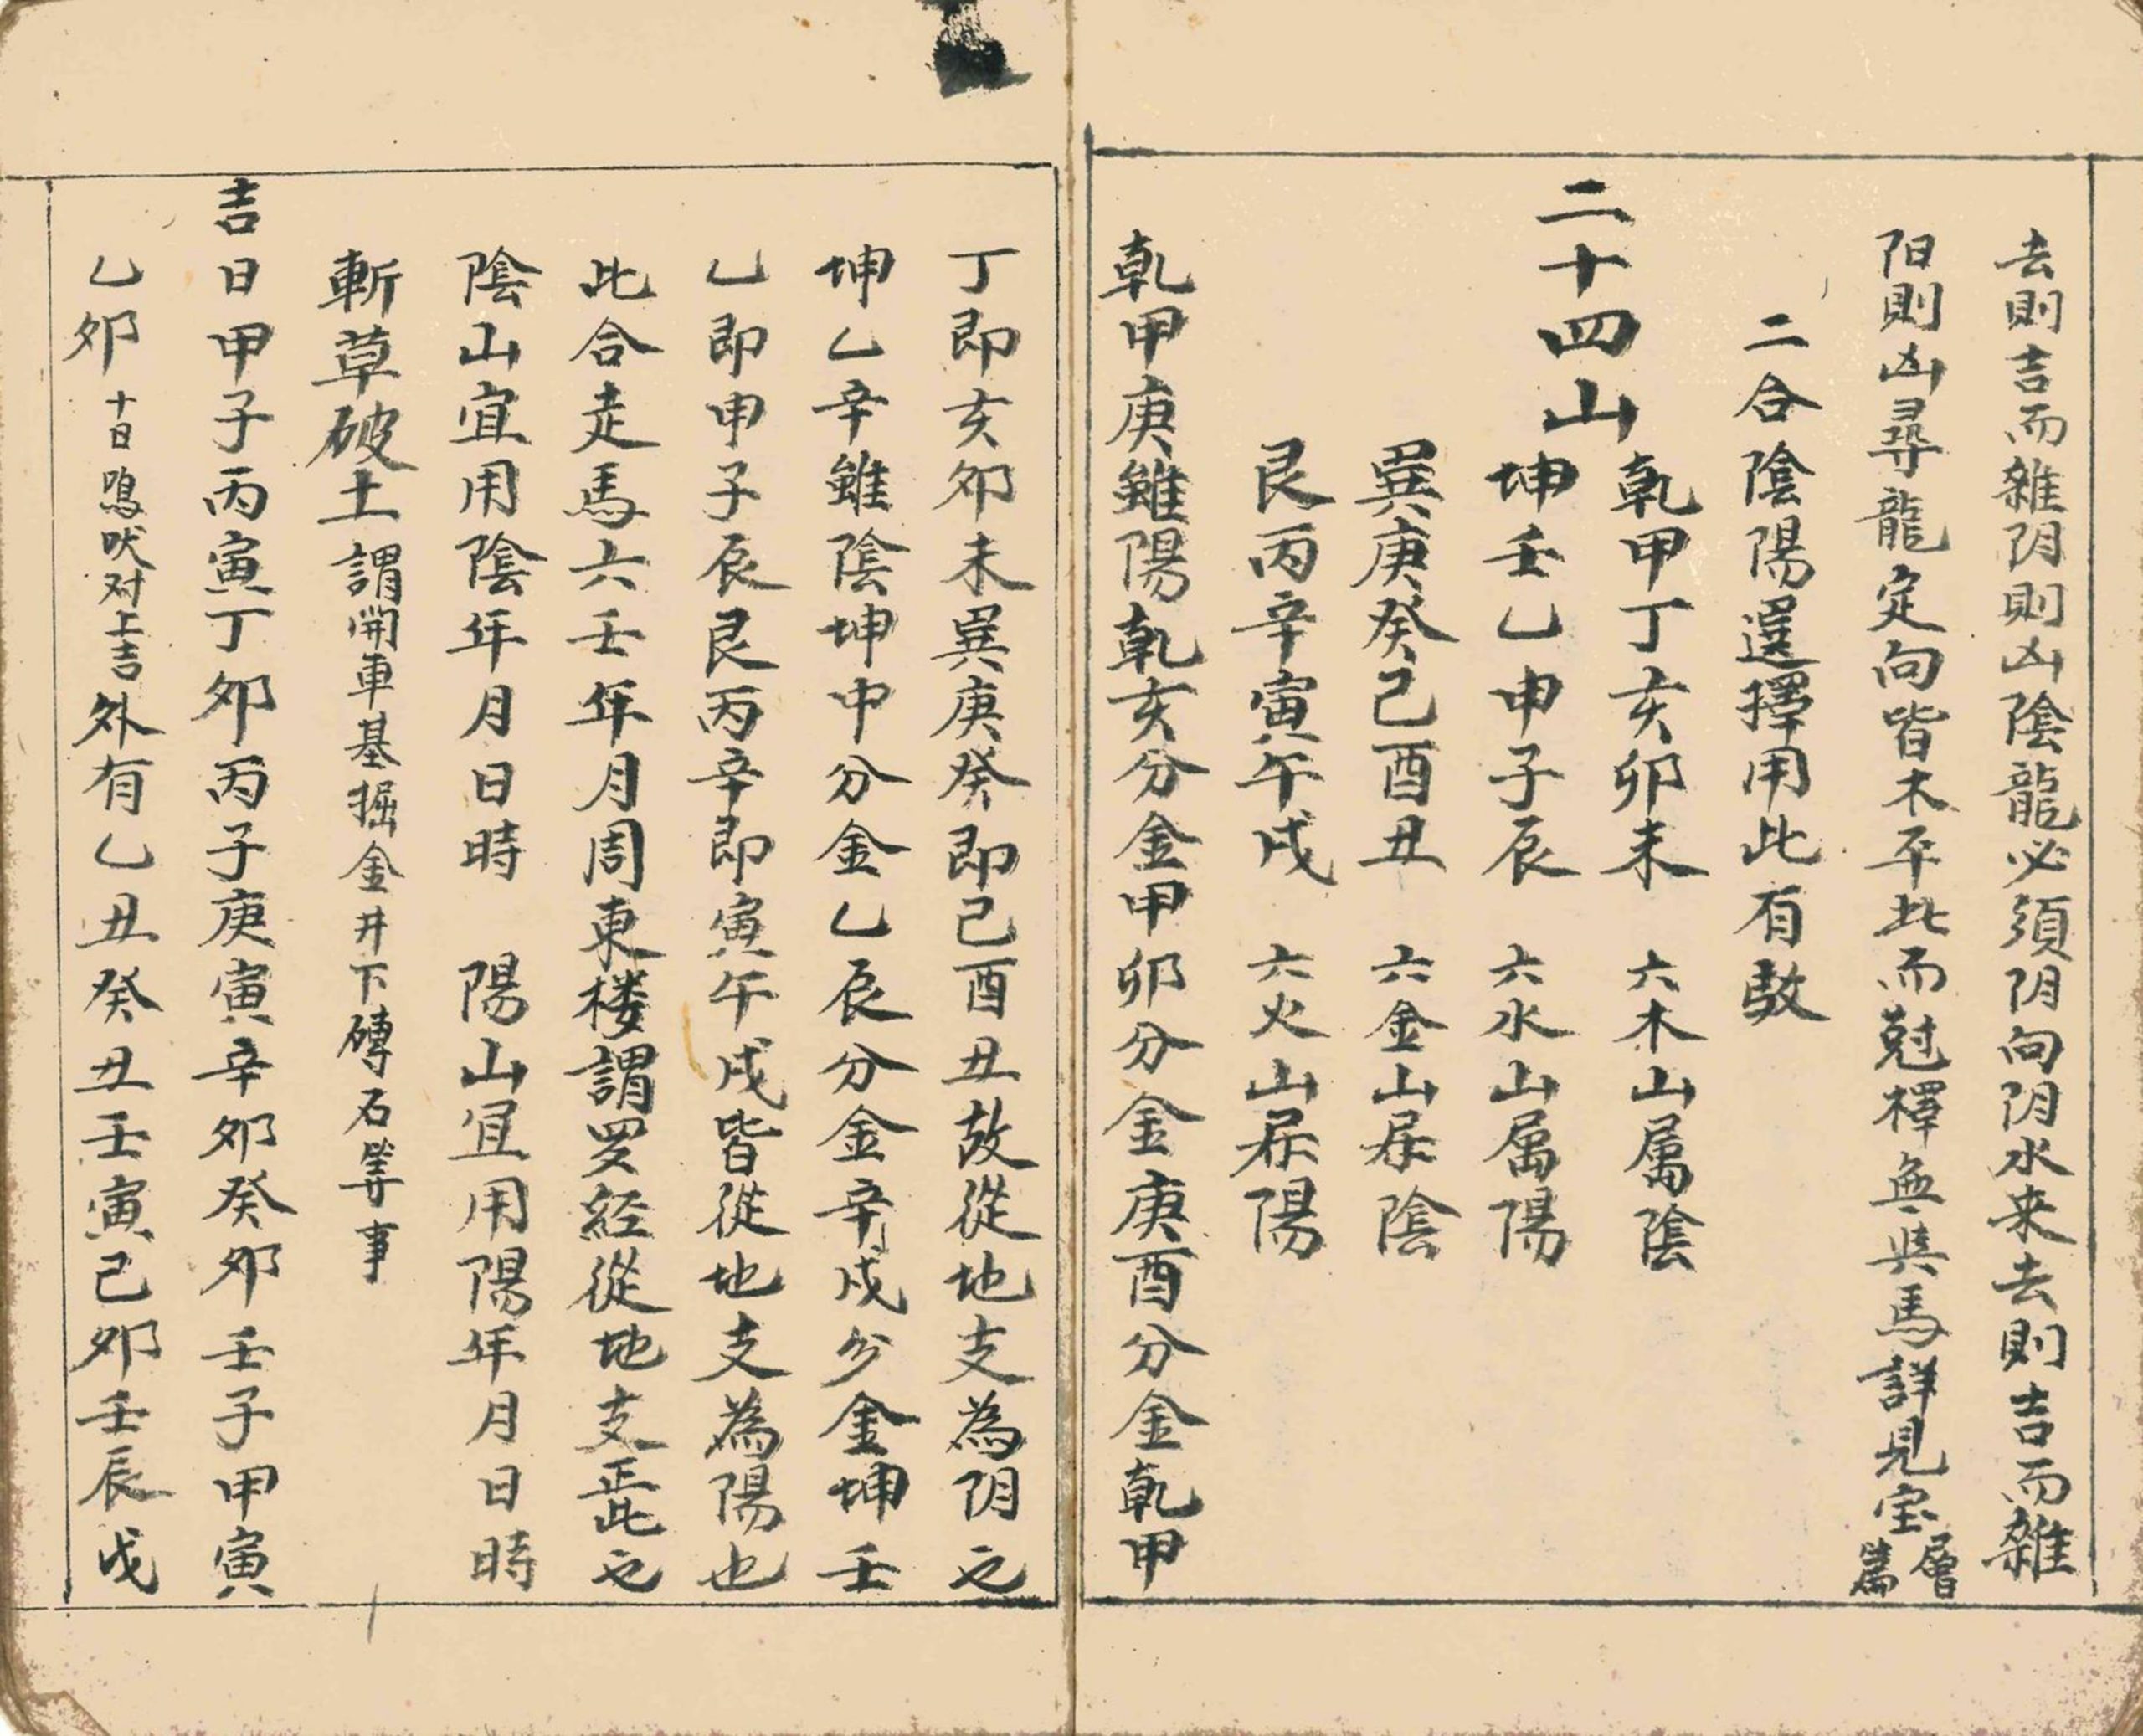 去則吉而雜阴則凶陰龍必須阴向阴水来去則吉而雜
阳則凶尋龍定向皆木平此而尅擇無與馬詳見宝層篇
二合陰陽選擇用此有敩
二十四山
乾甲丁亥卯未　六木山属陰
坤壬乙申子辰　六水山属陽
巽庚癸己酉丑　六金山屌陰
艮丙辛寅午戌　六火山屌陽
乾甲庚雖陽乾亥分金甲卯分金庚酉分金乾甲
丁即亥卯未巽庚癸即己酉丑故從地支為阴之
坤乙辛雖陰坤中分金乙辰分金辛戌分金坤壬
乙即申子辰艮丙辛即寅午戌皆從地支為陽也
此合走馬六壬年月周東楼謂罗経從地支正此之
陰山宜用陰年月日時　陽山宜用陽年月日時
斬草破土謂開車基掘金井下磚石等事
吉日甲子丙寅丁卯丙子庚寅辛卯癸卯壬子甲寅
乙卯十日鳴吠对上吉外有乙丑癸丑壬寅己卯壬辰戊